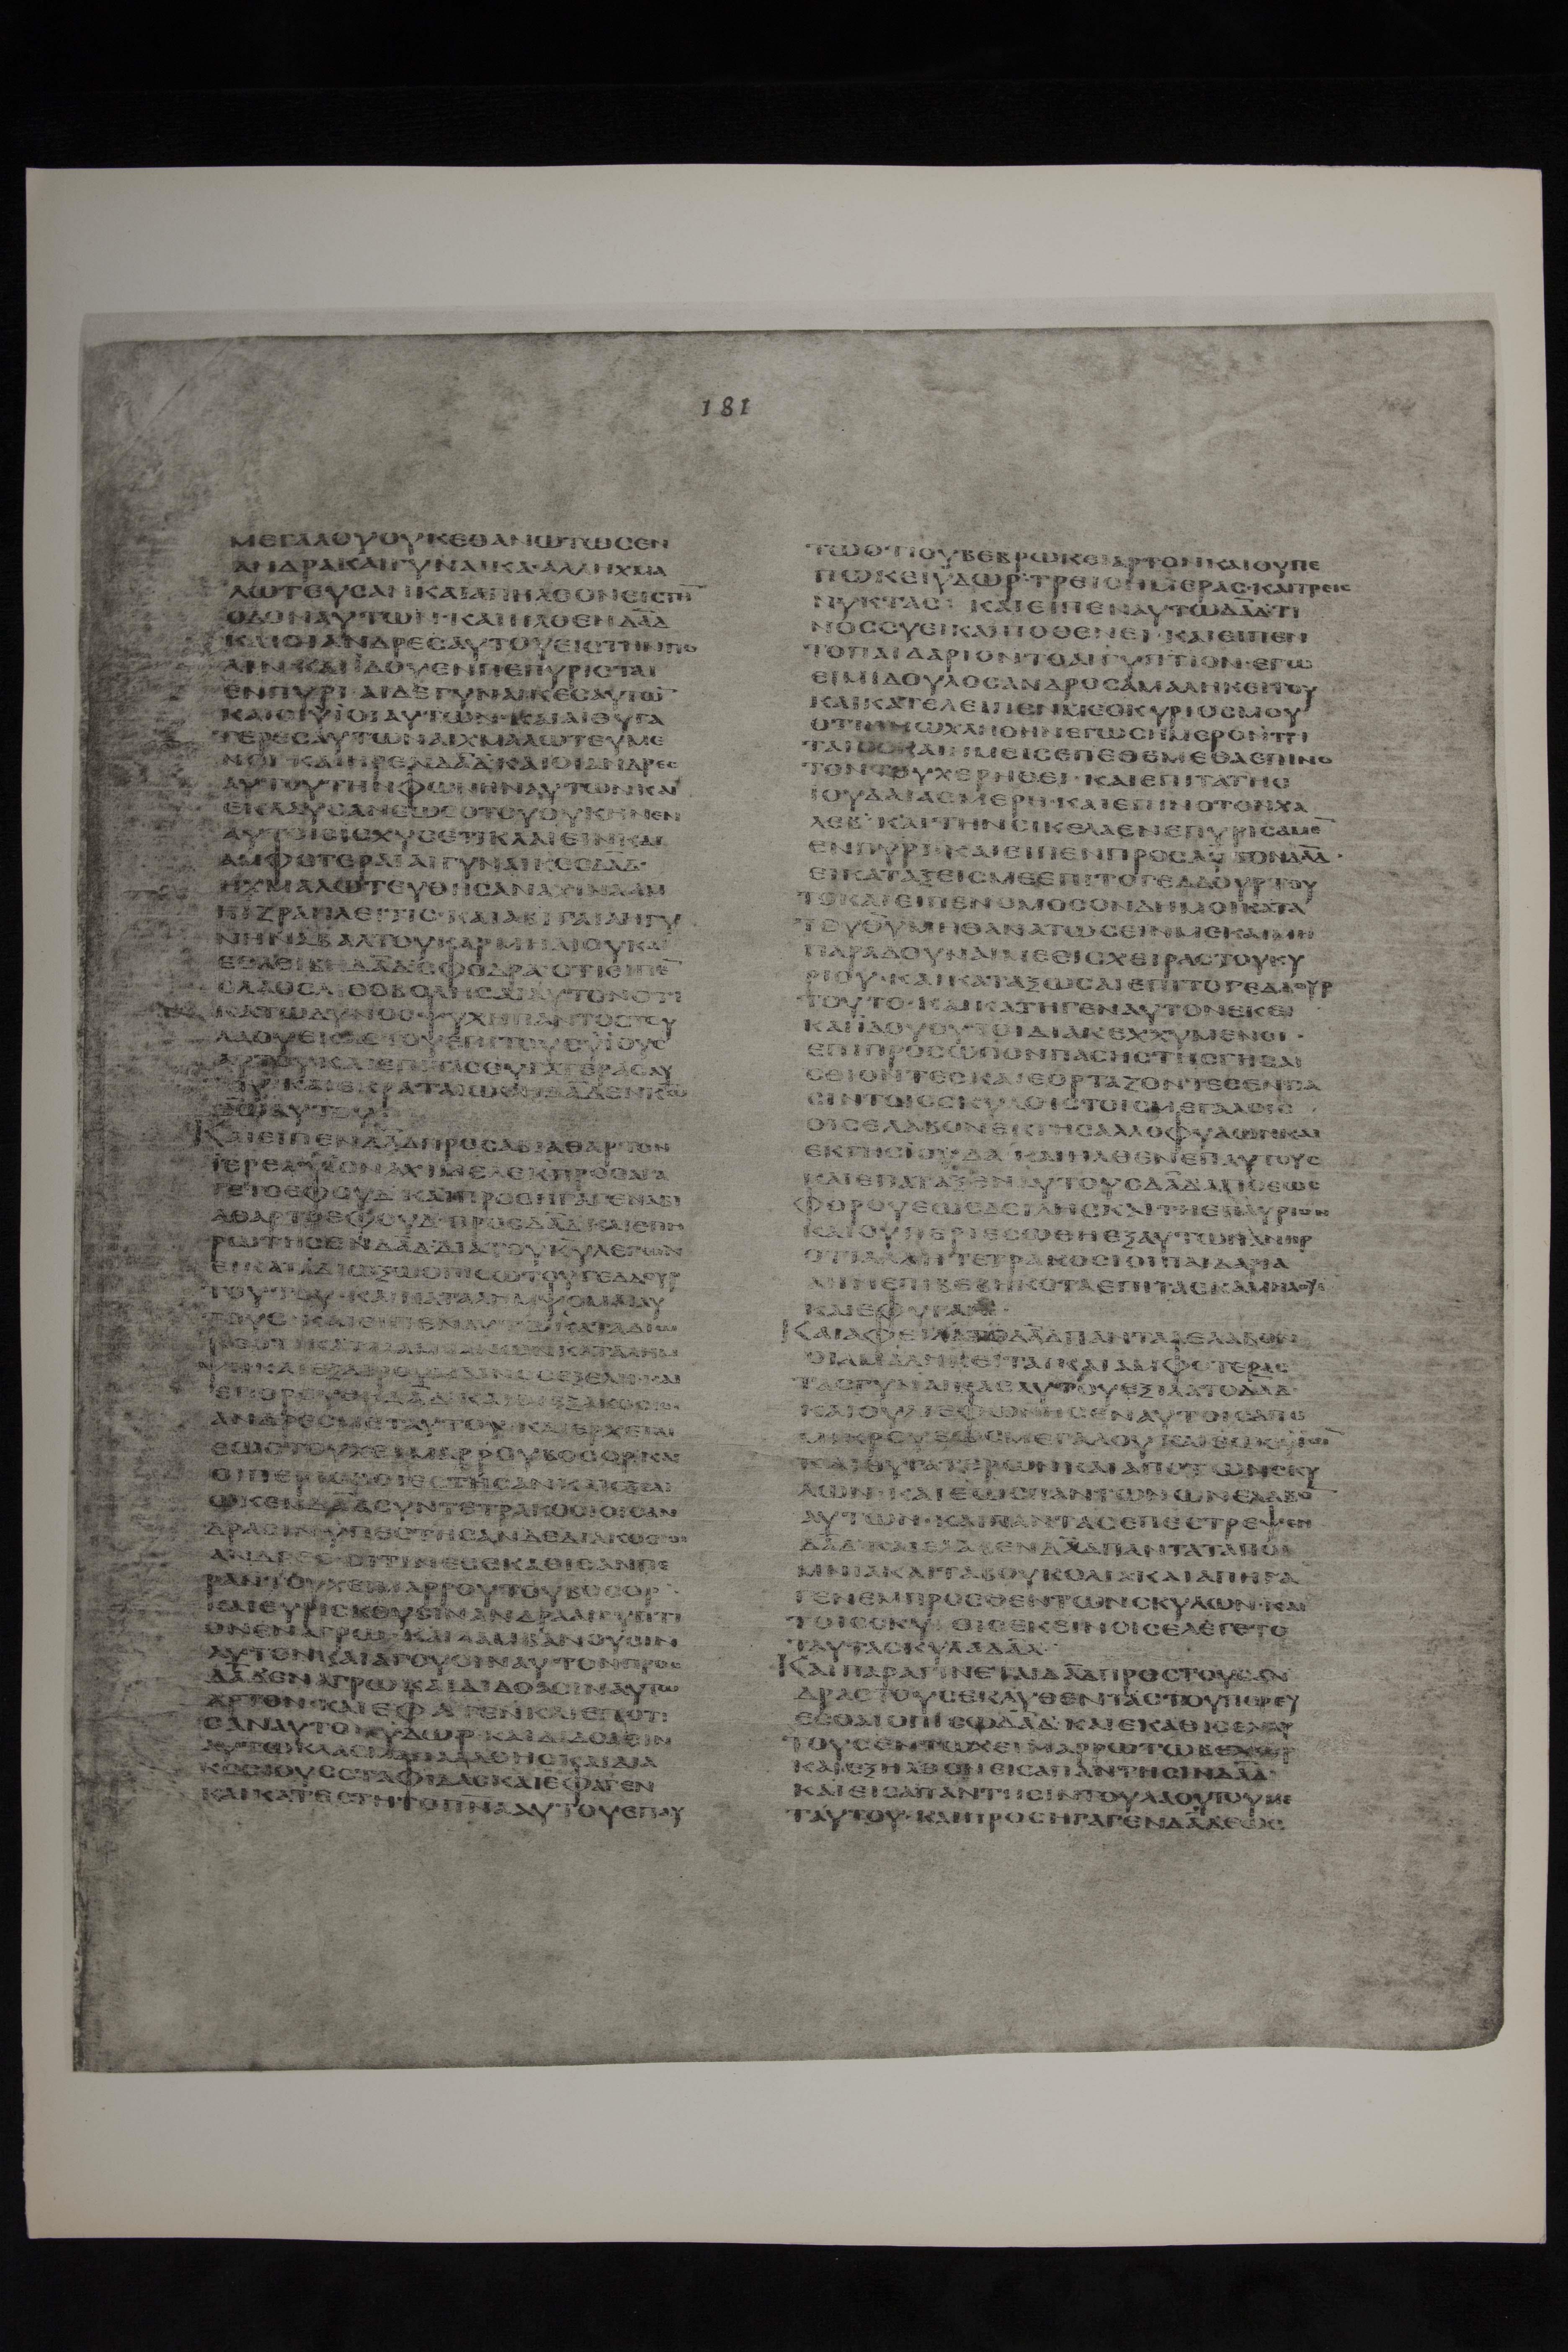 181
ΜΕΓΑΛΟΥΟΥΚΕΘΑΝΩΤΩϹΕΝ
ΑΝΔΡΑΚΑΙΓΥΝΑΙΚΑ·ΑΛΛΗΧΜΑ
ΛΩΤΕΥϹΑΝΚΑΙΑΠΗΛΘΟΝΕΙϹΤΗ̅
ΟΔΟΝΑΥΤΩΝ·ΚΑΙΗΛΘΕΝΔΑ̅Δ
ΚΑΙΟΙΑΝΔΡΕϹΑΥΤΟΥΕΙϹΤΗΝΠΟ
ΛΙΝ·ΚΑΙΪΔΟΥΕΝΠΕΠΥΡΙϹΤΑΙ
ΕΝΠΥΡΙ·ΑΙΔΕΓΥΝΑΙΚΕϹΑΥΤΩ̅
ΚΑΙΟΙΫΙΟΙΑΥΤΩΝ·ΚΑΙΑΙΘΥΓΑ
ΤΕΡΕϹΑΥΤΩΝΑΙΧΜΑΛΩΤΕΥΜΕ
ΝΟΙ·ΚΑΙΗΡΕΝΔΑ̅ΔΚΑΙΟΙΑΝΔΡΕϹ
ΑΥΤΟΥΤΗΝΦΩΝΗΝΑΥΤΩΝΚΑΙ
ΕΚΛΑΥϹΑΝΕΩϹΟΤΟΥΟΥΚΗΝΕΝ
ΑΥΤΟΙϹΙϹΧΥϹΕΤΙΚΛΑΙΕΙΝΚΑΙ
ΑΜΦΟΤΕΡΑΙΑΙΓΥΝΑΙΚΕϹΔΑΔ·
ΗΧΜΑΛΩΤΕΥΘΗϹΑΝΑΧΙΝΑΑΜ
ΝΗΝΑΒΑΛΤΟΥΚΑΡΜΗΛΙΟΥΚΑΙ
ΕΘΛΙΒΗΔΑ̅ΔϹΦΟΔΡΑ·ΟΤΙΕΙΠΕ̅
ΚΑΤΩΔΥΝΟϹΨΥΧΗΠΑΝΤΟϹΤΟΥ
ΛΑΟΥΕΚΑϹΤΟΥΕΠΙΤΟΥϹΥΪΟΥϹ
ΚΑΙΕΙΠΕΝΔΑ̅ΔΠΡΟϹΑΒΙΑΘΑΡΤΟΝ
ΪΕΡΕΑΥΪΟΝΑΧΙΜΕΛΕΚΠΡΟϹΑΓΑ
ΓΕΤΟΕΦΟΥΔ·ΚΑΙΠΡΟϹΗΓΑΓΕΝΑΒΙ
ΑΘΑΡΤΟΕΦΟΥΔ·ΠΡΟϹΔΑ̅ΔΚΑΙΕΠΗ
ΡΩΤΗϹΕΝΔΑ̅ΔΔΙΑΤΟΥΚ̅Υ̅ΛΕΓΩΝ
ΕΙΚΑΤΑΔΙΩΞΩΟΠΙϹΩΤΟΥΓΕΔΔΟΥΡ
ΤΟΥΤΟΥ·ΚΑΙΚΑΤΑΛΗΜΨΟΜΑΙΑΥ
ΤΟΥϹ·ΚΑΙΕΙΠΕΝΑΥΤΩΚΑΤΑΔΙΩ
ΚΕΟΤΙΚΑΤΑΛΑΜΒΑΝΩΝΚΑΤΑΛΗΜ
ΨΗΚΑΙΕΞΑΙΡΟΥΜΕΝΟϹΕΞΕΛΗ·ΚΑΙ
ΕΠΟΡΕΥΘΗΔΑ̅Δ·ΚΑΙΟΙΕΞΑΚΟϹΙΟΙ
ΑΝΔΡΕϹΜΕΤΑΥΤΟΥ·ΚΑΙΕΡΧΕΤΑΙ
ΕΩϹΤΟΥΧΕΙΜΑΡΡΟΥΒΟϹΟΡΚΑΙ
ΟΙΠΕΡΙϹϹΟΙΕϹΤΗϹΑΝΚΑΙΕΔΙΩ
ΔΡΑϹΙΝΫΠΕϹΤΗϹΑΝΔΕΔΙΑΚΟϹΙΟΙ
ΑΝΔΡΕϹ·ΟΙΤΙΝΕϹΕΚΑΘΙϹΑΝΠΕ
ΡΑΝΤΟΥΧΕΙΜΑΡΡΟΥΤΟΥΒΟϹΟΡ·
ΚΑΙΕΥΡΙϹΚΟΥϹΙΝΑΝΔΡΑΑΙΓΥΠΤΙ
ΟΝΕΝΑΓΡΩ·ΚΑΙΛΑΜΒΑΝΟΥϹΙΝ
ΑΥΤΟΝΚΑΙΑΓΟΥϹΙΝΑΥΤΟΝΠΡΟϹ
ΔΑ̅ΔΕΝΑΓΡΩΚΑΙΔΙΔΟΑϹΙΝΑΥΤΩ
ΑΡΤΟΝ·ΚΑΙΕΦΑΓΕΝΚΑΙΕΠΟΤΙ
ϹΑΝΑΥΤΟΝΫΔΩΡ·ΚΑΙΔΙΔΟΑϹΙΝ
ΑΥΤΩΚΛΑϹΜΑΠΑΛΑΘΗϹΚΑΙΔΙΑ
ΚΟϹΙΟΥϹϹΤΑΦΙΔΑϹΚΑΙΕΦΑΓΕΝ
ΚΑΙΚΑΤΕϹΤΗΤΟΠ̅Ν̅ΑΑΥΤΟΥΕΠΑΥ
ΤΩΟΤΙΟΥΒΕΒΡΩΚΕΙΑΡΤΟΝΚΑΙΟΥΠΕ
ΠΩΚΕΙΫΔΩΡ·ΤΡΕΙϹΗΜΕΡΑϹ·ΚΑΙΤΡΕΙϹ
ΝΥΚΤΑϹ· ΚΑΙΕΙΠΕΝΑΥΤΩΔΑ̅Δ·ΤΙ
ΝΟϹϹΥΕΙΚΑΙΠΟΘΕΝΕΙ·ΚΑΙΕΙΠΕΝ
ΤΟΠΑΙΔΑΡΙΟΝΤΟΑΙΓΥΠΤΙΟΝ·ΕΓΩ
ΕΙΜΙΔΟΥΛΟϹΑΝΔΡΟϹΑΜΑΛΗΚΕΙΤΟΥ
ΚΑΙΚΑΤΕΛΕΙΠΕΝΜΕΟΚΥΡΙΟϹΜΟΥ
ΟΤΙΗΝΩΧΛΗΘΗΝΕΓΩϹΗΜΕΡΟΝΤΡΙ
ΤΑΙΟϹΚΑΙΗΜΕΙϹΕΠΕΘΕΜΕΘΑΕΠΙΝΟ
ΤΟΝΤΟΥΧΕΡΗΘΕΙ·ΚΑΙΕΠΙΤΑΤΗϹ
ΙΟΥΔΑΙΑϹΜΕΡΗ·ΚΑΙΕΠΙΝΟΤΟΝΧΑ
ΛΕΒ·ΚΑΙΤΗΝϹΙΚΕΛΑΕΝΕΠΥΡΙϹΑΜΕ̅
ΕΝΠΥΡΙ·ΚΑΙΕΙΠΕΝΠΡΟϹΑΥΤΟΝΔΑ̅Δ·
ΕΙΚΑΤΑΞΕΙϹΜΕΕΠΙΤΟΓΕΔΔΟΥΡΤΟΥ
ΤΟΚΑΙΕΙΠΕΝΟΜΟϹΟΝΔΗΜΟΙΚΑΤΑ
ΤΟΥΘ̅Υ̅ΜΗΘΑΝΑΤΩϹΕΙΝΜΕΚΑΙΜΗ
ΠΑΡΑΔΟΥΝΑΙΜΕΕΙϹΧΕΙΡΑϹΤΟΥΚΥ
ΡΙΟΥ·ΚΑΙΚΑΤΑΞΩϹΑΙΕΠΙΤΟΓΕΔΔΟΥΡ
ΤΟΥΤΟ·ΚΑΙΚΑΤΗΓΕΝΑΥΤΟΝΕΚΕΙ
ΚΑΙΪΔΟΥΟΥΤΟΙΔΙΑΚΕΧΧΥΜΕΝΟΙ·
ΕΠΙΠΡΟϹΩΠΟΝΠΑϹΗϹΤΗϹΓΗϹΑΙ
ϹΘΙΟΝΤΕϹΚΑΙΕΟΡΤΑΖΟΝΤΕϹΕΝΠΑ
ϹΙΝΤΟΙϹϹΚΥΛΟΙϹΤΟΙϹΜΕΓΑΛΟΙϹ
ΟΙϹΕΛΑΒΟΝΕΚΓΗϹΑΛΛΟΦΥΛΩΝΚΑΙ
ΕΚΓΗϹΙΟΥΔΑ ΚΑΙΗΛΘΕΝΕΠΑΥΤΟΥϹ
ΚΑΙΕΠΑΤΑΞΕΝΑΥΤΟΥϹΔΑ̅ΔΑΠΟΕΩϹ
ΦΟΡΟΥΕΩϹΔΕΙΛΗϹΚΑΙΤΗΕΠΑΥΡΙΟΝ
ΚΑΙΟΥΠΕΡΙΕϹΩΘΗΕΞΑΥΤΩΝΑΝΗΡ
ΟΤΙΑΛΛΗΤΕΤΡΑΚΟϹΙΟΙΠΑΙΔΑΡΙΑ
ΑΗΝΕΠΙΒΕΒΗΚΟΤΑΕΠΙΤΑϹΚΑΜΗΛΟΥϹ
ΚΑΙΕΦΥΓΑΝ·
ΚΑΙΑΦΕΙΛΑΤΟΔΑ̅ΔΠΑΝΤΑΑΕΛΑΒΟΝ
ΟΙΑΜΑΛΗΚΕΙΤΑΙΚΑΙΑΜΦΟΤΕΡΑϹ
ΤΑϹΓΥΝΑΙΚΑϹΑΥΤΟΥΕΞΙΛΑΤΟΔΑΔ·
ΚΑΙΟΥΔΙΕΦΩΝΗϹΕΝΑΥΤΟΙϹΑΠΟ
ΜΙΚΡΟΥΕΩϹΜΕΓΑΛΟΥ
ΚΑΙΘΥΓΑΤΕΡΩΝΚΑΙΑΠΟΤΩΝϹΚΥ
ΛΩΝ·ΚΑΙΕΩϹΠΑΝΤΩΝΩΝΕΛΑΒΟ̅
ΑΥΤΩΝ·ΚΑΙΠΑΝΤΑϹΕΠΕϹΤΡΕΨΕΝ
ΔΑ̅Δ·ΚΑΙΕΛΑΒΕΝΔΑ̅ΔΠΑΝΤΑΤΑΠΟΙ
ΜΝΙΑΚΑΙΤΑΒΟΥΚΟΛΙΑΚΑΙΑΠΗΓΑ
ΓΕΝΕΜΠΡΟϹΘΕΝΤΩΝϹΚΥΛΩΝ·ΚΑΙ
ΤΟΙϹϹΚΥΛΟΙϹΕΚΕΙΝΟΙϹΕΛΕΓΕΤΟ
ΤΑΥΤΑϹΚΥΛΑΔΑ̅Δ·
ΚΑΙΠΑΡΑΓΙΝΕΤΑΙΔΑ̅ΔΠΡΟϹΤΟΥϹΑΝ
ΔΡΑϹΤΟΥϹΕΚΛΥΘΕΝΤΑϹΤΟΥΠΟΡΕΥ
ΕϹΘΑΙΟΠΙϹΩΔΑ̅Δ·ΚΑΙΕΚΑΘΙϹΕΝΑΥ
ΤΟΥϹΕΝΤΩΧΕΙΜΑΡΡΩΤΩΒΕΧΩΡ
ΚΑΙΕΞΗΛΘΟΝΕΙϹΑΠΑΝΤΗϹΙΝΔΑ̅Δ·
ΚΑΙΕΙϹΑΠΑΝΤΗϹΙΝΤΟΥΛΑΟΥΤΟΥΜΕ
ΤΑΥΤΟΥ·ΚΑΙΠΡΟϹΗΓΑΓΕΝΔΑ̅ΔΕΩϹ